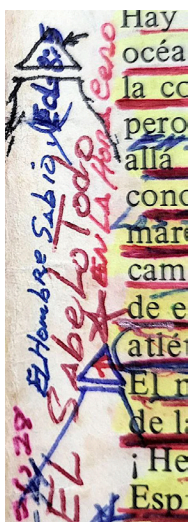 El Hombre Sabio y
EL SabeLoTodo
EN LA HORA Cero
Hay
océa
la co
pero
alla
cond
mare
cam
de e
atlé
El
de la
¡He
Espa